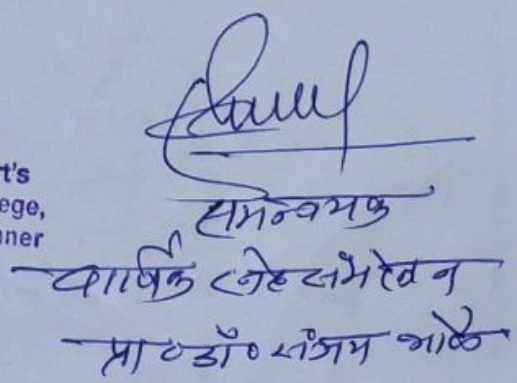 t's
ege,
nner
समन्वयक
वार्षिक स्नेहसंमेलन
प्रा०डॉ० संजय